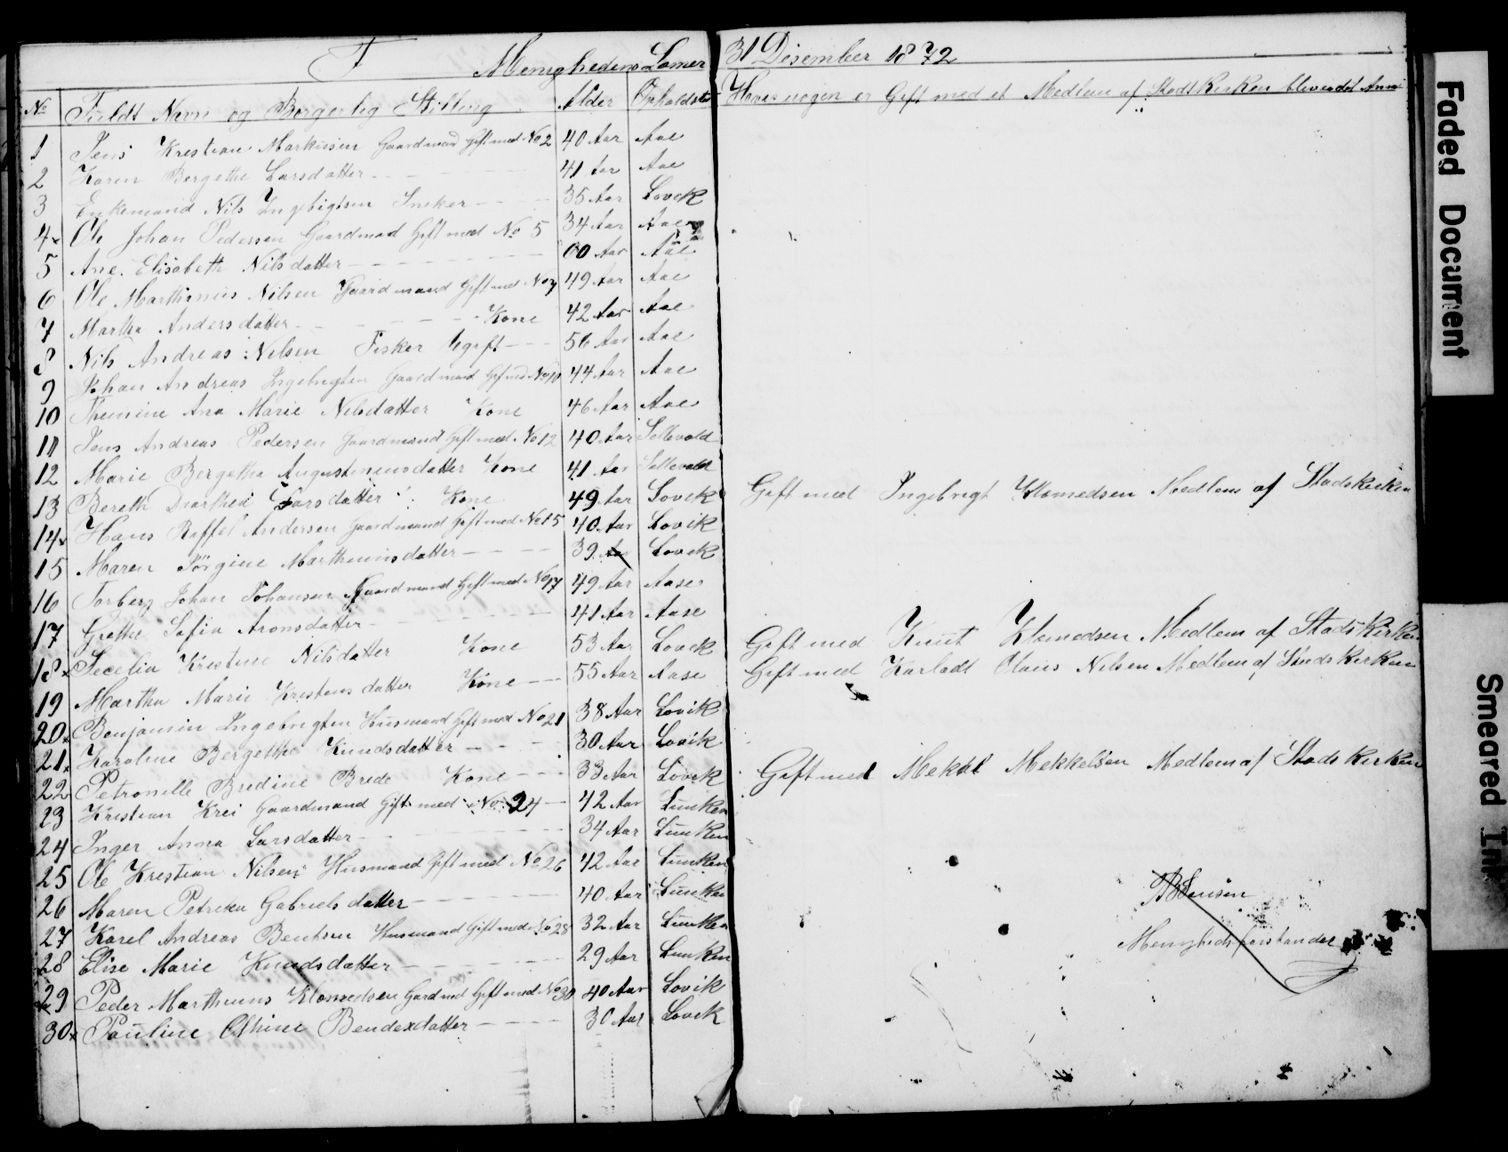 F Menighedens Lemer 31 Desember 1872
No Fuldt Navn og Borgerlig Stilling Alder Opholdst Hvis nogen er Gift med et Medlem af Stadtkirken blevendet Anm
1 Jens Krestian Markussen Gaardmand Gift med No 2 40 Aar Aae
2 Karen Bergethe Larsdatter 41 Aar Aae
3 Enkemand Nils Ingebigtsen Sneker 35 Aar Lovik
4 Ole Johan Pedersen Gaardmad Gift med No 5 34 Aar Aae
5 Ane Elisabeth Nilsdatter 60 Aar Aae
6 Ole Marthinius Nilsen Gaardmand Gift med No 7 49 Aar Aae
7 Martha Andersdatter Kone 42 Aar Aae
8 Nils Andreas Nilsen Fisker Ugift 56 Aar Aae
9 Johan Andreas Ingebrigten Gaardmand Gift med No 10 44 Aar Aae
10 Ana Marie Nilsdatter Kone 46 Aar Aae
11 Jens Andreas Pedersen Gaardmand Gift med No 12 40 Aar Sellevold
12 Marie Bergetha Augustinusdatter Kone 41 Aar Sellevold
13 Bereth Larsdatter Kone 49 Aar Lovik Gift med Ingebrigt Klemedsen Medlem af Stadskirken
14 Hans Raffel Andersen Gaardmand Gift med No 15 40 Aar Lovik
15 Maren Jörgine Marthinusdatter 39 Aar Lovik
16 Torberg Johan Johansen Gaardmand Gift med No 17 49 Aar Aase
17 Grethe Sofia Aronsdatter 41 Aar Aase
18 Secelia Krestine Nilsdatter Kone 53 Aar Lovik Gift med Knut Klemedsen Medlem af Stads Kirken
19 Martha Marie Krestensdatter Kone 55 Aar Aase Gift med Karladt Olaus Nilsen Medlem af Stads Kirken
20 Benjamin Ingebrigten Husmand Gift med No 21 38 Aar Lovik
21 Karoline Bergethe Knudsdatter 30 Aar Lovik
22 Petronille Bredine Brede Kone 33 Aar Lovik Gift med Mekal Mekkelsen Medlem af Stads Kirken
23 Kristian Krei Gaardmand Gift med No 24 42 Aar Lunken
24 Inger Anna Larsdatter 34 Aar Lunken
25 Ole Krestian Nilsen Husmand Gift med No 26 42 Aar Lunken
26 Maren Petrea Gabrielsdatter 40 Aar Lunken
27 Karel Andreas Bentsen Husmand Gift med No 28 32 Aar Lunken
28 Elise Marie Knudsdatter 29 Aar Lunken
29 Peder Marthinus Klemedsen Gardmd Gift med No 30 40 Aar Lovik
30 Pauline Othine Bendexdatter 30 Aar Lovik
Menighedsforstander
Faded Document
Smeared Ink